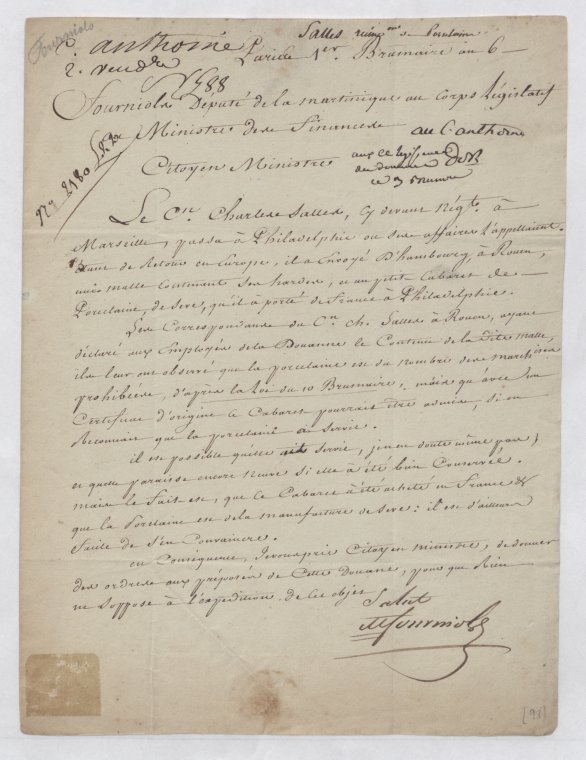 Fourniols
anthoine
Salles
2. vendre
Paris le 1er Brumaire an 6
Fourniols Député de la martinique au Corps Législatif
au Ministre des Finances
au C. anthoine
Citoyen Ministre
No 2180
Le Cn. Charles Salles, cy devant Négt. à
Marseille, passa à Philadelphie ou des affaires l'appellaient.
Etant de Retour en Europe, il a Envoyé D'hambourg à Rouen,
une malle contenant ses hardes, et un petit Cabaret de
Porcelaine, de Seve, qu'il a porté de France à Philadelphie.
Les Correspondans du Cn. Ch. Salles à Rouen, ayant
déclaré aux Employés de la Douanne le Contenu de la dite malle,
ils leur ont observé que la porcelaine est du nombre des marchises
prohibées, d'après la Loi du 10 Brumaire, mais qu'avec un
Certificat d'origine ce Cabaret pourrait être admis, si on
Reconnait que la porcelaine a servie.
il est possible quelle ait servie, je n'en doute même pas;
et quelle paraisse encore neuve si elle a été bien Conservée.
mais le fait est, que ce Cabaret a été acheté en France &
que la Porcelaine est de la manufacture de Seve: il est d'ailleurs
facile de s'en Convaincre.
en Conséquence, Je vous prie Citoyen ministre, de donner
des ordres aux préposés de Cette Douane, pour que Rien
ne s'oppose à l'expédition de Ces objets.
Salut
Fourniols
[93]